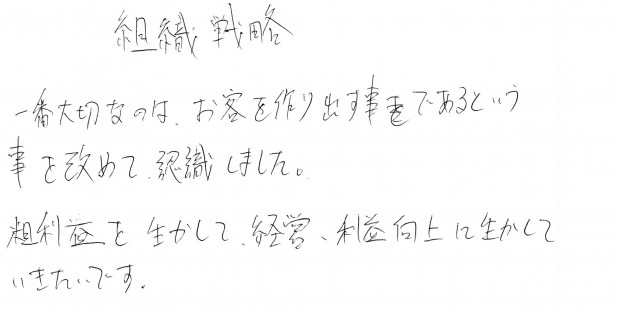 組織戦略
一番大切なのは、お客を作り出す事であるという
事を改めて、認識しました。
粗利益を生かして、経営、利益向上に生かして
いきたいです。